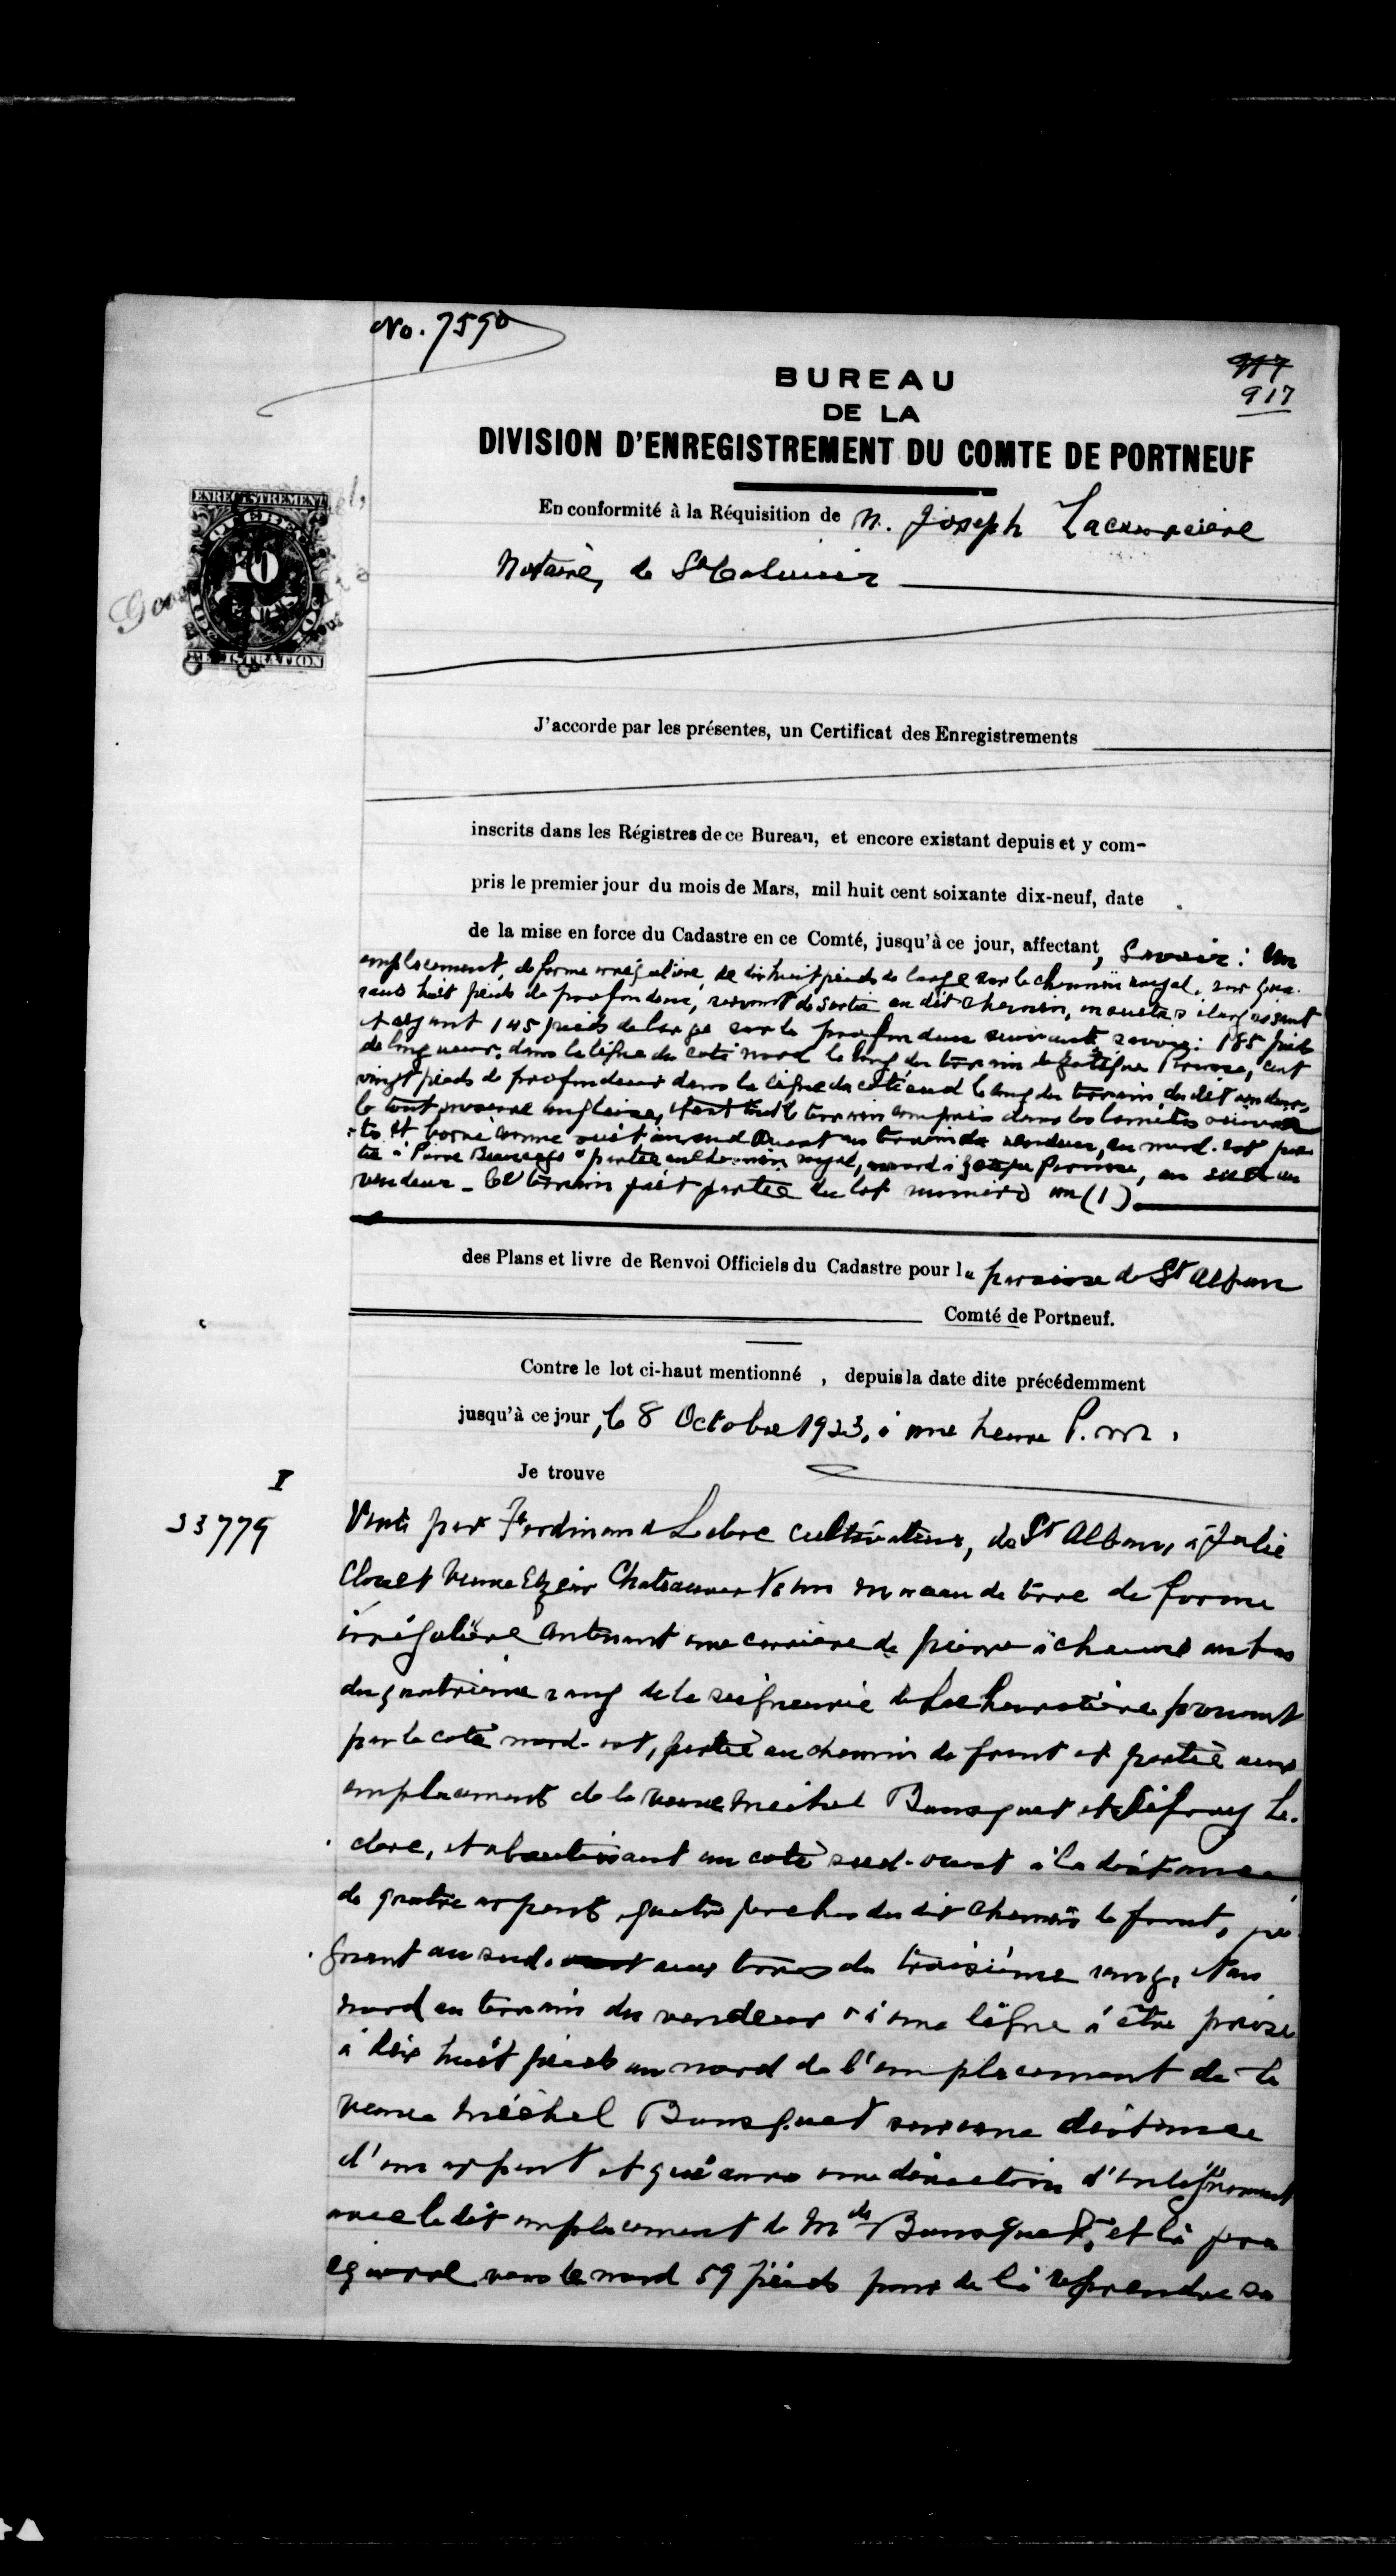 No. 7590
917
917
BUREAU
DE LA
DIVISION D'ENREGISTREMENT DU COMTE DE PORTNEUF
ENREGISTREMENT
QUEBEC
REGISTRATION
En conformité à la Réquisition de M. Joseph Lacoursière
Notaire, de St Casimir
J'accorde par les présentes, un Certificat des Enregistrements
inscrits dans les Régistres de ce Bureau, et encore existant depuis et y com-
pris le premier jour du mois de Mars, mil huit cent soixante dix-neuf, date
de la mise en force du Cadastre en ce Comté, jusqu'à ce jour, affectant, Savoir: Un
emplacement, de forme irrégulière, de dix huit pieds de large sur le chemin royal, sur qua-
rante huit pieds de profondeur, servant de sortie au dit chemin, ensuite s'élargissant
et ayant 145 pieds de large sur la profondeur suivante, savoir: 185 pieds
de longueur, dans la ligne du coté nord le long du terrain de Perron, cent
vingt pieds de profondeur dans la ligne du coté sud le long du terrain du dit vendeur,
le tout mesure anglaise, étant tout le terrain compris dans les limites suivan-
tes et borné comme suit au sud Ouest au terrain du vendeur, au nord-est par-
tie à Pierre & partie au chemin royal, au nord à Perron, au sud au
vendeur _ Ce terrain fait partie du lot numéro un (1)
des Plans et livre de Renvoi Officiels du Cadastre pour la paroisse de St Alban
Comté de Portneuf.
Contre le lot ci-haut mentionné , depuis la date dite précédemment
jusqu'à ce jour, le 8 Octobre 1923, à une heure P.m.
Je trouve
I
33779
Vente par Ferdinand Leclerc cultivateur, de St Alban, à Julie
Clouet Veuve Elzéar Chateauvert d'un morceau de terre de forme
irrégulière contenant une carrière de pierre à chaux au bas
du quatrième rang de la seigneurie de Lachevrotière prenant
par le coté nord-est, partie au chemin de front et partie aux
emplacements de la veuve Michel Bousquet et Le-
clerc, et aboutissant au coté sud-ouest à la distance
de quatre arpents quatre perches du dit chemin de front, joi-
gnant au sud-ouest aux terres du troisième rang, et au
nord au terrain du vendeur & à une ligne à être prise
à dix huit pieds au nord de l'emplacement de la
veuve Michel Bousquet sur une distance
d'un arpent et qui aura une direction d'
avec le dit emplacement de Mde Bousquet, et là fera
équerre vers le nord 59 pieds pour de là reprendre sa